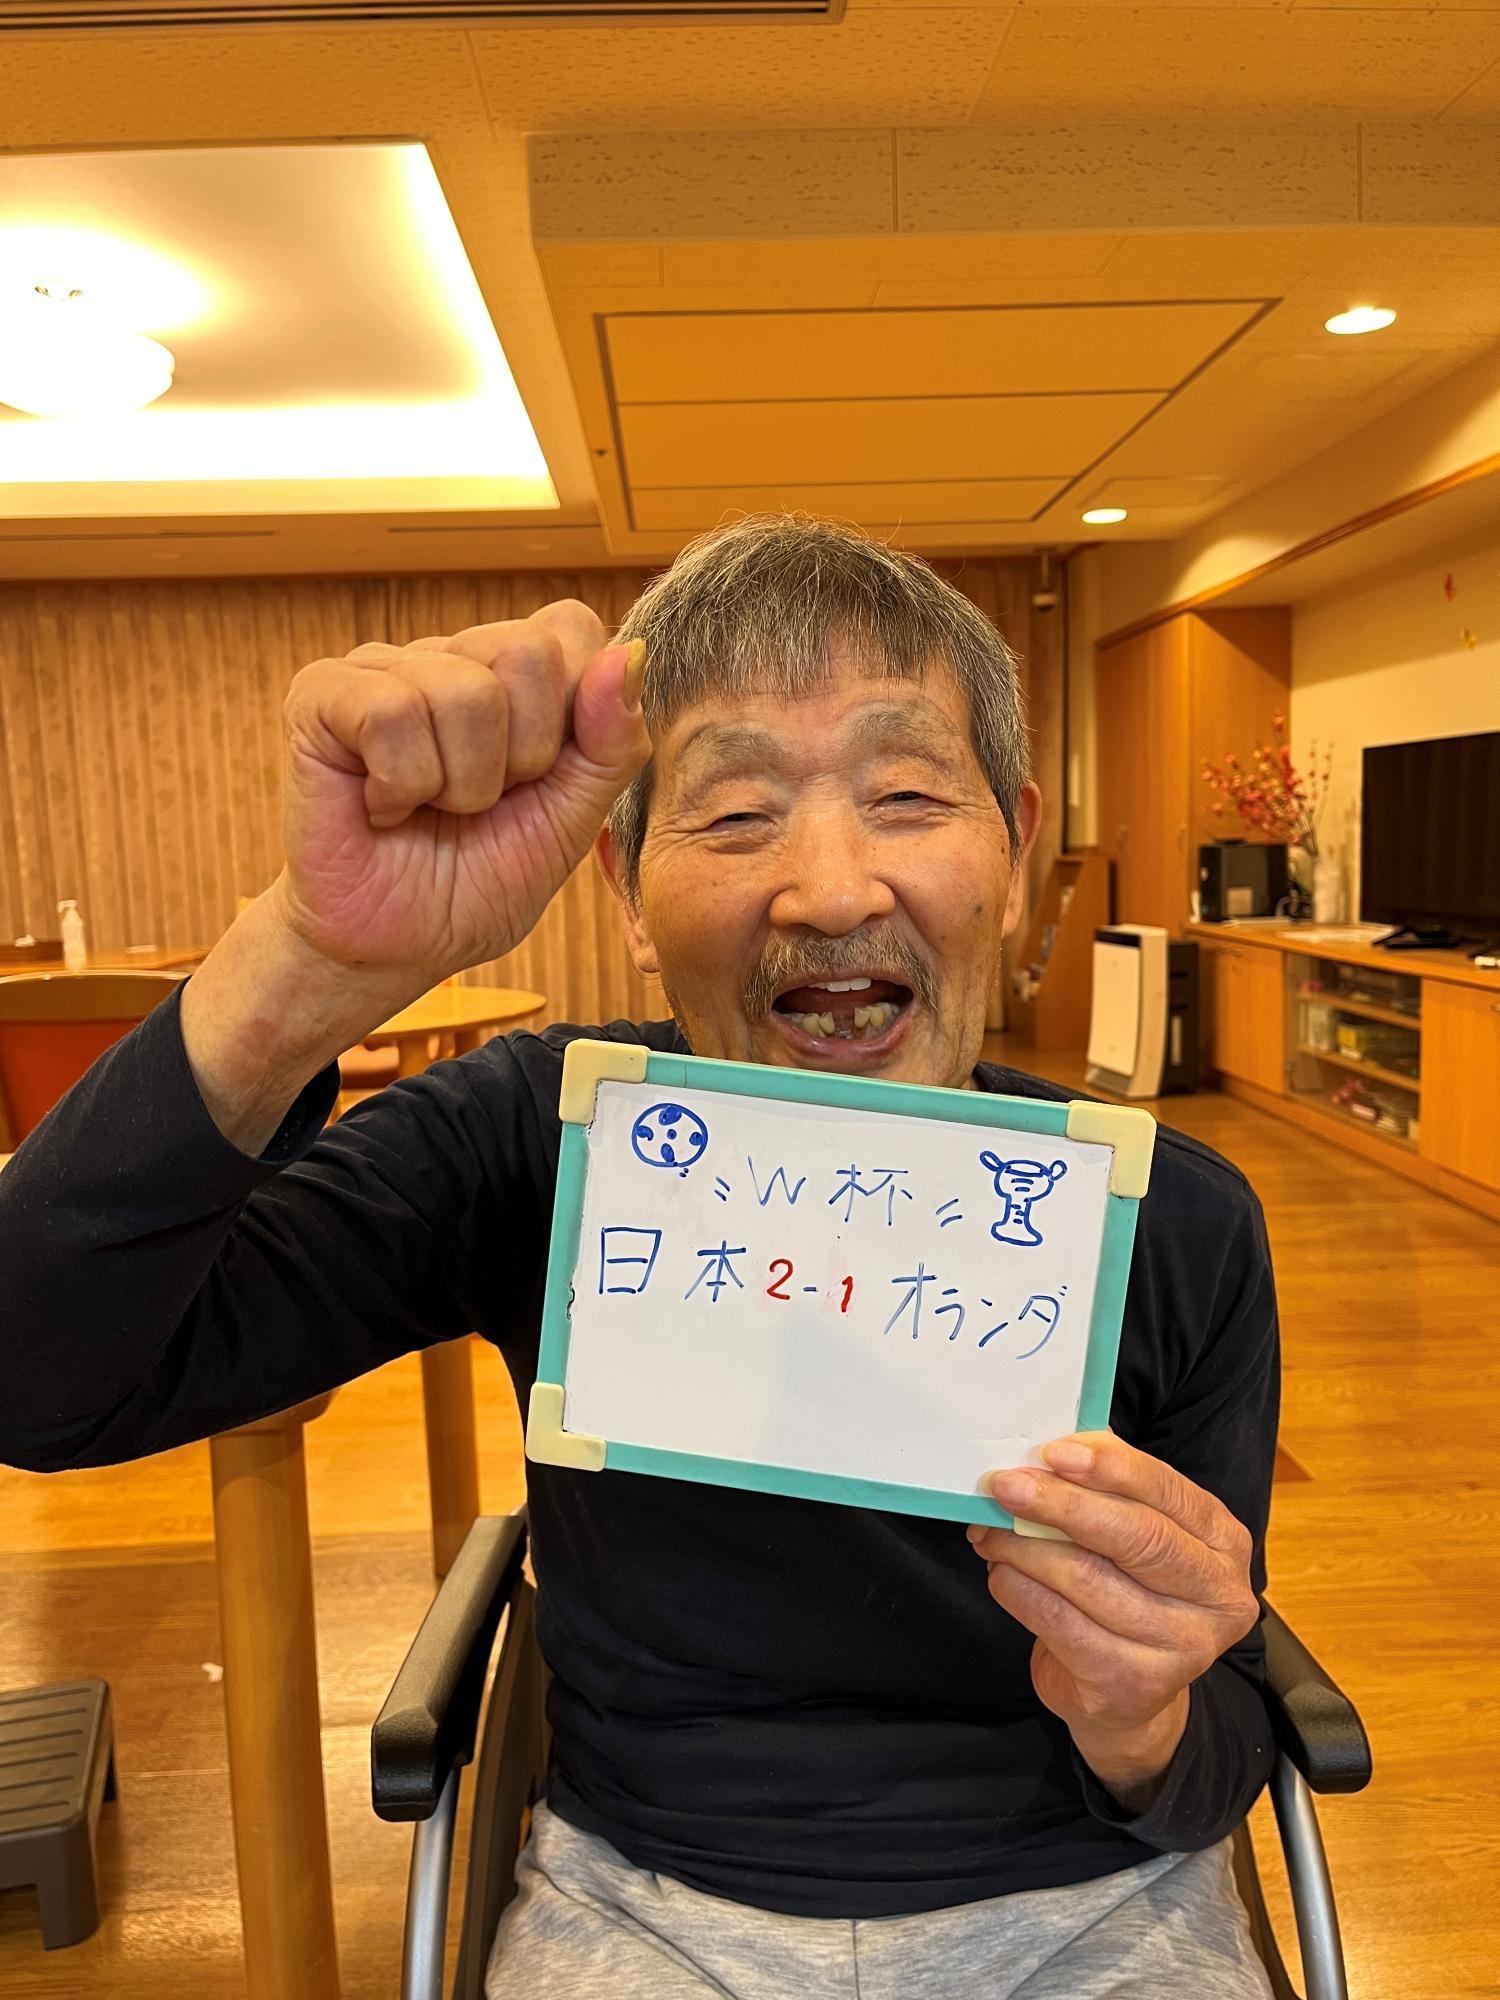 W杯
日本2-1オランダ